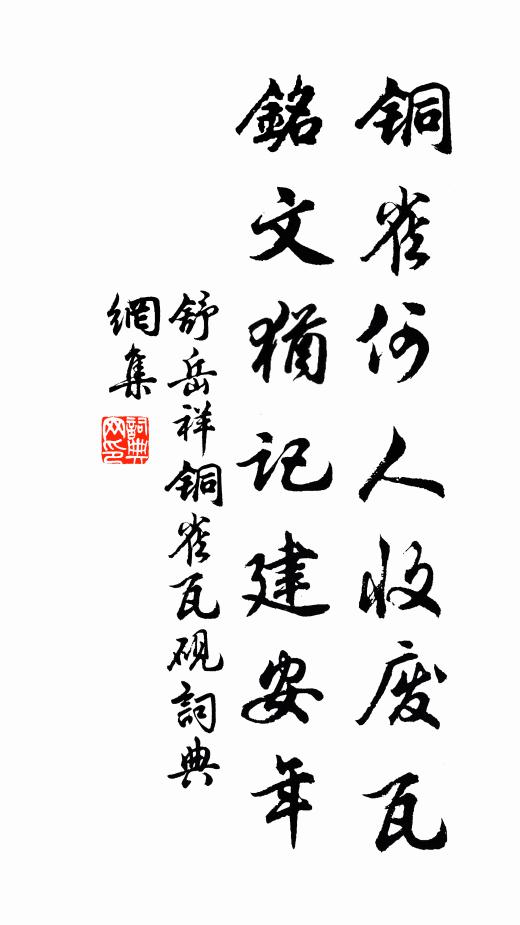 铜雀何人收废瓦
銘文猶记建安年
舒岳祥铜雀瓦砚詞典
網集
詞典
网印